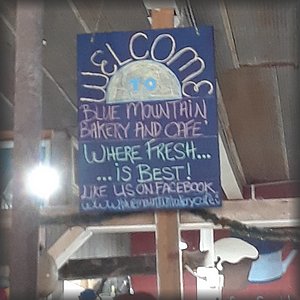 WELCOME
TO
BLUE MOUNTAIN
BAKERY AND CAFE'
WHERE FRESH...
...IS BEST!
LIKE US ON FACEBOOK